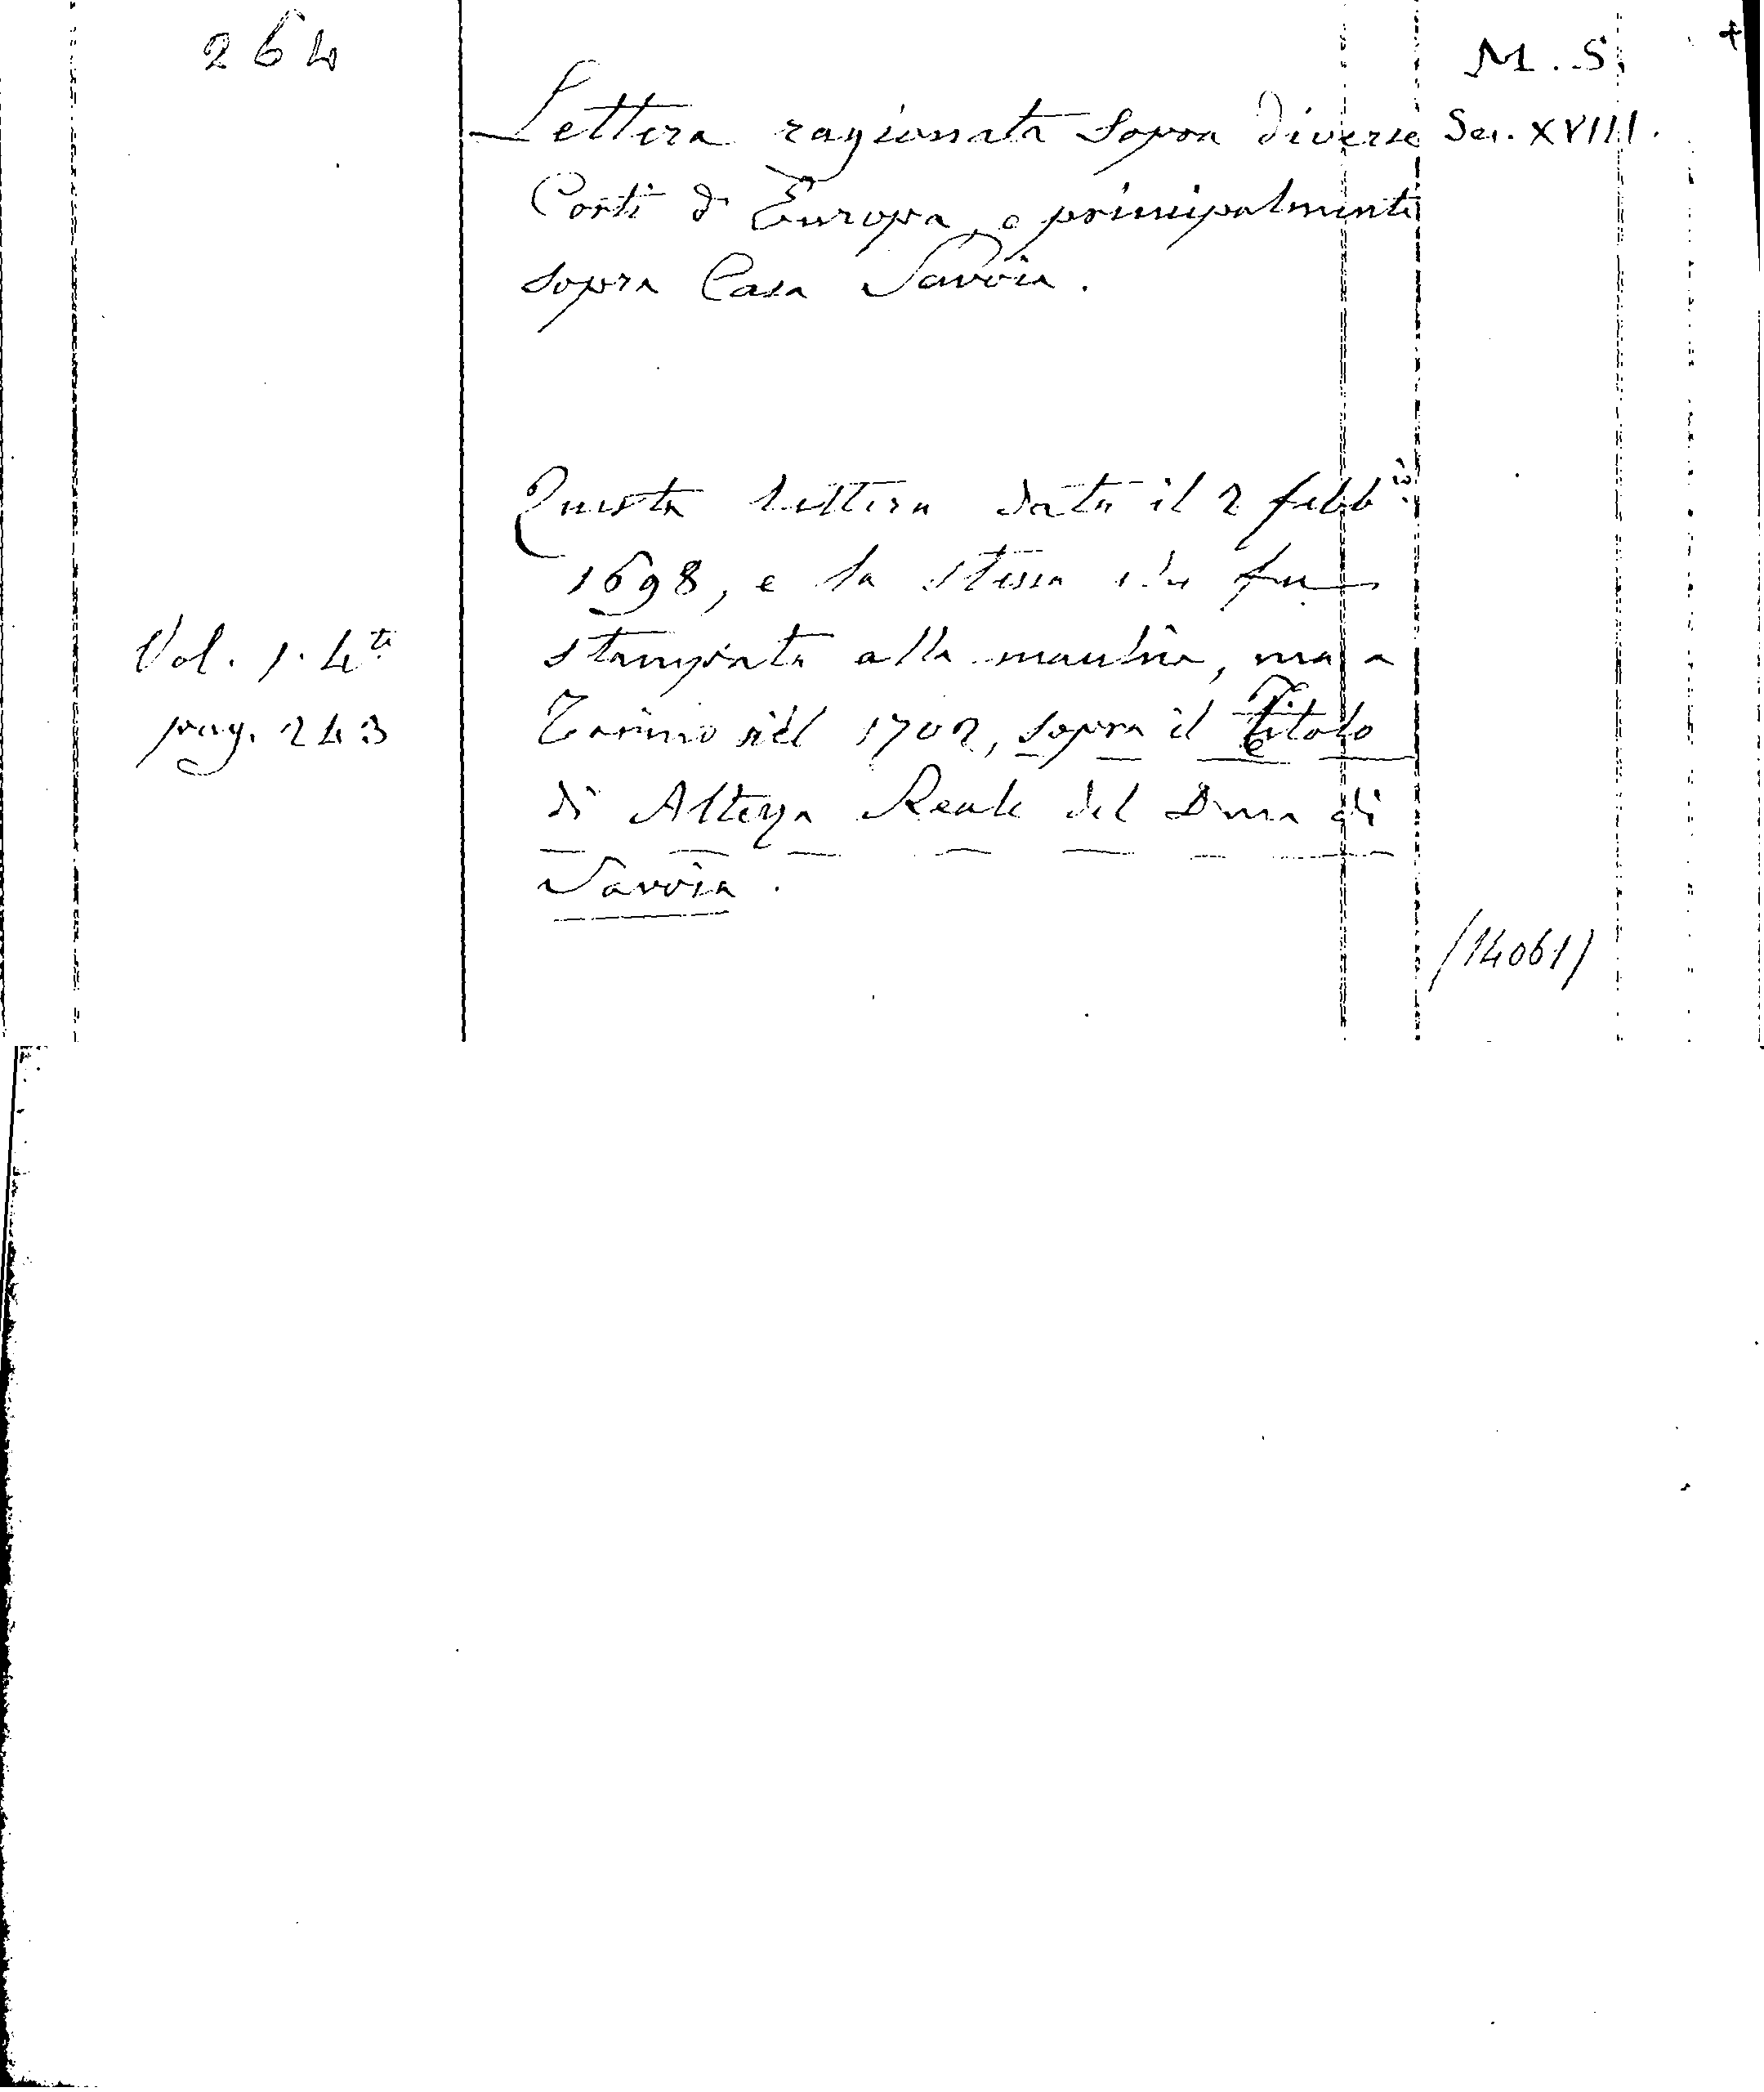 264
M. S.
Lettera ragionata sopra diverse
Sec. XVIII.
Corti d'Europa, e principalmente
sopra Casa Savoia.
Questa lettera data il 2 febb.io
1698, e la stessa che fu
Vol. 1. 4to
stampata alla macchia, ma a
pag. 243
Torino nel 1702, sopra il Titolo
di Altezza Reale del Duca di
Savoia.
(14061)